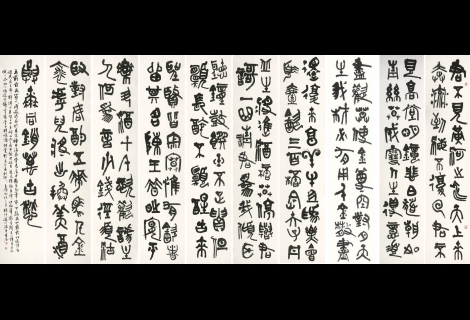 君不見黃河之水天上來
奔流到海不復回君不
見高堂明鏡悲白髮朝如
青絲暮成雪人生得意須
盡歡莫使金尊空對月天
生我材必有用千金散盡
還復來烹羊宰牛且為樂會
須一飲三百杯岑夫子丹
丘生將進酒君莫停與君
歌一曲請君為我傾耳聽
鐘鼓饌玉不足貴但
願長醉不願醒古來
聖賢皆寂寞惟有飲者
留其名陳王昔時宴平
樂斗酒十千恣歡謔主
人何為言少錢徑須沽
取對君酌五花馬千金
裘呼兒將出換美酒
與爾同銷萬古愁